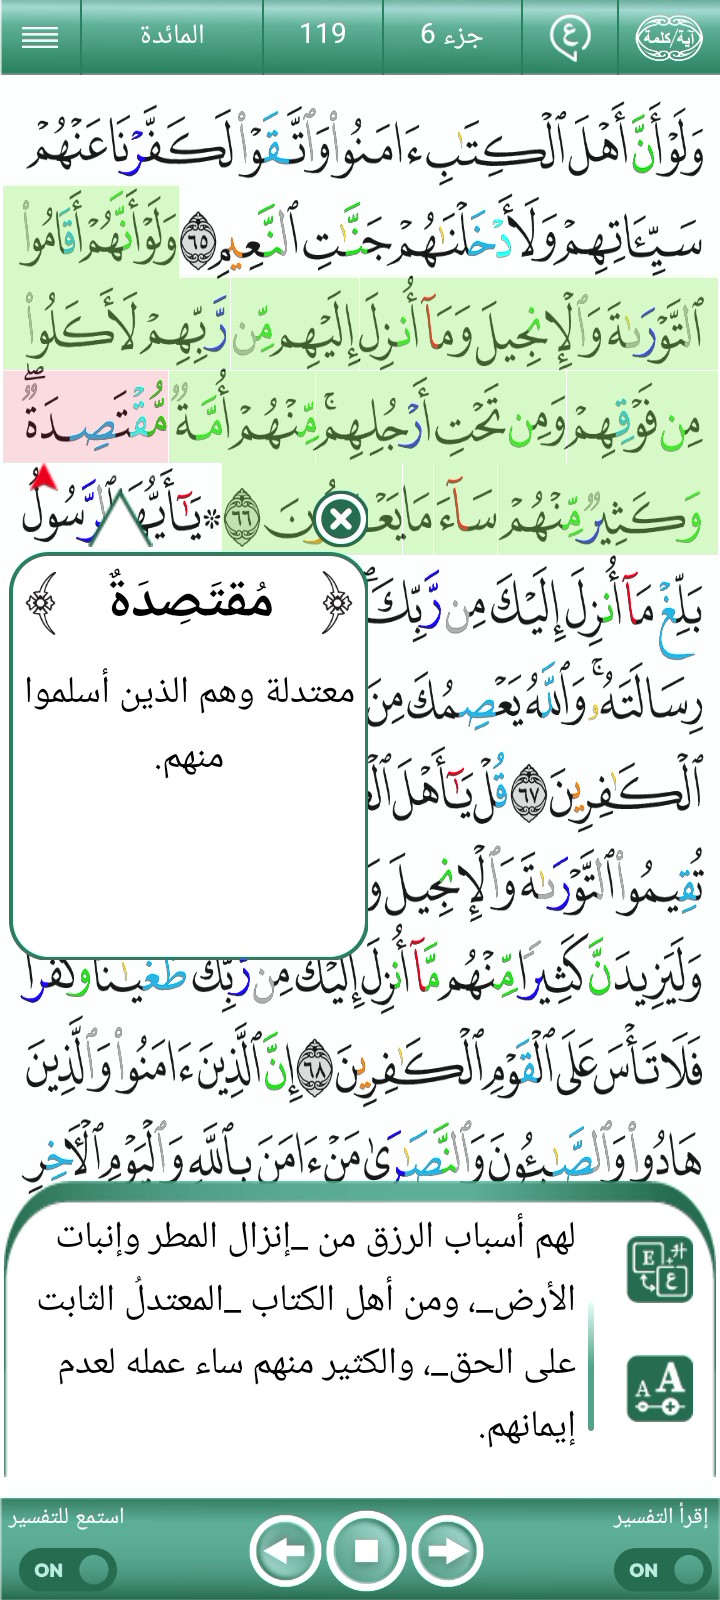 آية/كلمة ع جزء 6 119 المائدة
وَلَوْ أَنَّ أَهْلَ ٱلْكِتَٰبِ ءَامَنُوا۟ وَٱتَّقَوْا۟ لَكَفَّرْنَا عَنْهُمْ
سَيِّـَٔاتِهِمْ وَلَأَدْخَلْنَٰهُمْ جَنَّٰتِ ٱلنَّعِيمِ ٦٥ وَلَوْ أَنَّهُمْ أَقَامُوا۟
ٱلتَّوْرَىٰةَ وَٱلْإِنجِيلَ وَمَآ أُنزِلَ إِلَيْهِم مِّن رَّبِّهِمْ لَأَكَلُوا۟
مِن فَوْقِهِمْ وَمِن تَحْتِ أَرْجُلِهِم ۚ مِّنْهُمْ أُمَّةٌ مُّقْتَصِدَةٌ ۖ
وَكَثِيرٌ مِّنْهُمْ سَآءَ مَا يَعْ نَ ٦٦ ۞ يَٰٓأَيُّهَا ٱلرَّسُولُ
بَلِّغْ مَآ أُنزِلَ إِلَيْكَ مِن رَّبِّكَ
رِسَالَتَهُۥ ۚ وَٱللَّهُ يَعْصِمُكَ مِنَ
ٱلْكَٰفِرِينَ ٦٧ قُلْ يَٰٓأَهْلَ
تُقِيمُوا۟ ٱلتَّوْرَىٰةَ وَٱلْإِنجِيلَ
وَلَيَزِيدَنَّ كَثِيرًا مِّنْهُم مَّآ أُنزِلَ إِلَيْكَ مِن رَّبِّكَ طُغْيَٰنًا وَكُفْرًا
فَلَا تَأْسَ عَلَى ٱلْقَوْمِ ٱلْكَٰفِرِينَ ٦٨ إِنَّ ٱلَّذِينَ ءَامَنُوا۟ وَٱلَّذِينَ
هَادُوا۟ وَٱلصَّٰبِـُٔونَ وَٱلنَّصَٰرَىٰ مَنْ ءَامَنَ بِٱللَّهِ وَٱلْيَوْمِ ٱلْءَاخِرِ
﴿ مُقتَصِدَةٌ ﴾
معتدلة وهم الذين أسلموا
منهم.
لهم أسباب الرزق من _إنزال المطر وإنبات
الأرض_، ومن أهل الكتاب _المعتدلُ الثابت
على الحق_، والكثير منهم ساء عمله لعدم
إيمانهم.
E ع
A A
إقرأ التفسير استمع للتفسير
ON ON